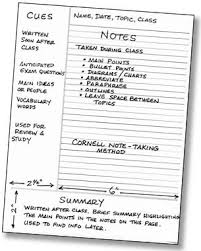 CUES
NAME, DATE, TOPIC, CLASS
WRITTEN
SOON AFTER
CLASS
ANTICIPATED
EXAM QUESTIONS
MAIN IDEAS
OR PEOPLE
VOCABULARY
WORDS
USED FOR
REVIEW &
STUDY
NOTES
TAKEN DURING CLASS
• MAIN POINTS
• BULLET POINTS
• DIAGRAMS/CHARTS
• ABBREVIATE
• PARAPHRASE
• OUTLINES
• LEAVE SPACE BETWEEN
TOPICS
CORNELL NOTE-TAKING
METHOD
2½"
6"
2"
SUMMARY
WRITTEN AFTER CLASS. BRIEF SUMMARY HIGHLIGHTING
THE MAIN POINTS IN THE NOTES ON THE PAGE.
USED TO FIND INFO LATER.